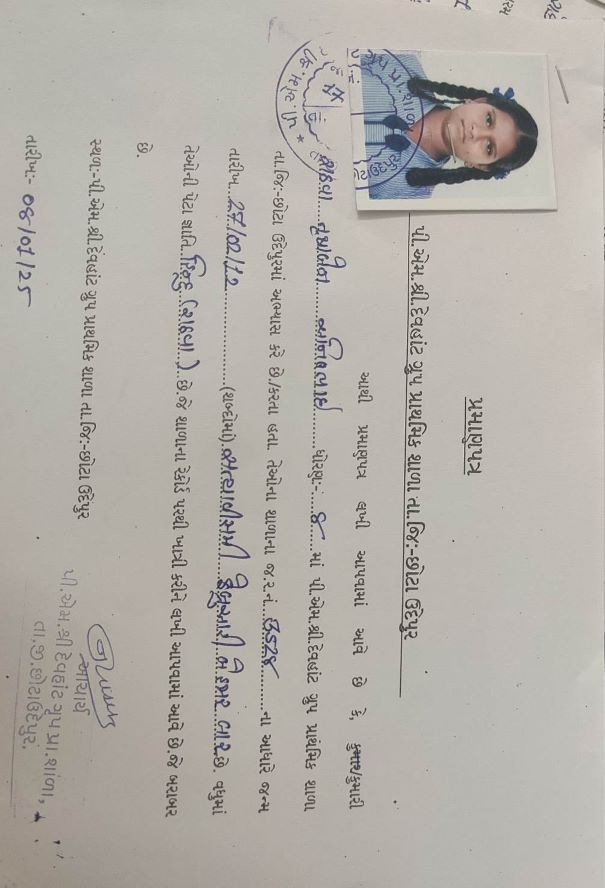 પ્રમાણપત્ર
પી.એમ.શ્રી.દેવહાંટ ગ્રુપ પ્રાથમિક શાળા તા.જિ:-છોટા ઉદેપુર
આથી પ્રમાણપત્ર લખી આપવામાં આવે છે કે, કુમાર/કુમારી
રાઠવા ..... ધોરણ:- ..૪.. માં પી.એમ.શ્રી.દેવહાંટ ગ્રુપ પ્રાથમિક શાળા
તા.જિ:-છોટા ઉદેપુરમાં અભ્યાસ કરે છે/કરતા હતા. તેઓના શાળાના જ.ર.નં. ..... ના આધારે જન્મ
તારીખ..27/02/12.......(શબ્દોમાં).સત્યાવીસમી ફેબ્રુઆરી બે હજાર બાર.છે. વધુમાં
તેઓની પેટા જ્ઞાતિ..હિન્દુ (રાઠવા)...છે.જે શાળાના રેકોર્ડ પરથી ખાત્રી કરીને લખી આપવામાં આવે છે.જે બરાબર
છે.
સ્થળ:-પી.એમ.શ્રી.દેવહાંટ ગ્રુપ પ્રાથમિક શાળા તા.જિ:-છોટા ઉદેપુર
તારીખ:- 08/07/25
આચાર્ય
પી.એમ.શ્રી દેવહાંટ ગ્રુપ પ્રા.શાળા,
તા.જી.છોટાઉદેપુર.